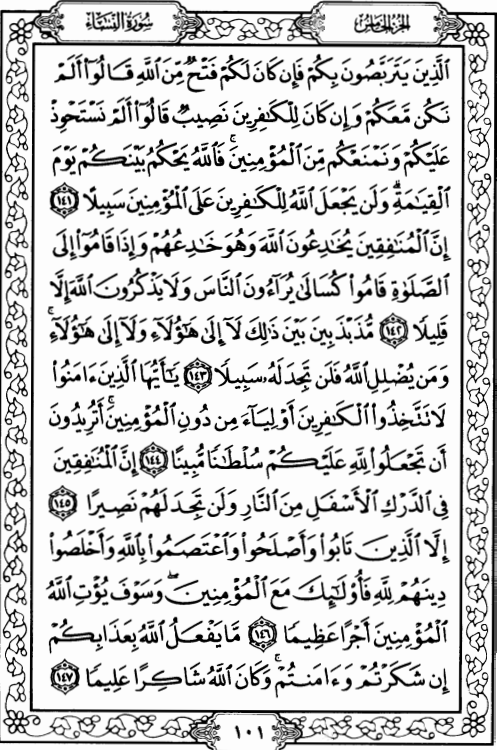 الجزء الخامس
سورة النساء
الَّذِينَ يَتَرَبَّصُونَ بِكُمْ فَإِن كَانَ لَكُمْ فَتْحٌ مِّنَ اللَّهِ قَالُوٓا۟ أَلَمْ
نَكُن مَّعَكُمْ وَإِن كَانَ لِلْكَٰفِرِينَ نَصِيبٌ قَالُوٓا۟ أَلَمْ نَسْتَحْوِذْ
عَلَيْكُمْ وَنَمْنَعْكُم مِّنَ الْمُؤْمِنِينَ ۚ فَاللَّهُ يَحْكُمُ بَيْنَكُمْ يَوْمَ
الْقِيَٰمَةِ ۗ وَلَن يَجْعَلَ اللَّهُ لِلْكَٰفِرِينَ عَلَى الْمُؤْمِنِينَ سَبِيلًا ١٤١
إِنَّ الْمُنَٰفِقِينَ يُخَٰدِعُونَ اللَّهَ وَهُوَ خَٰدِعُهُمْ وَإِذَا قَامُوٓا۟ إِلَى
الصَّلَوٰةِ قَامُوا۟ كُسَالَىٰ يُرَآءُونَ النَّاسَ وَلَا يَذْكُرُونَ اللَّهَ إِلَّا
قَلِيلًا ١٤٢ مُّذَبْذَبِينَ بَيْنَ ذَٰلِكَ لَآ إِلَىٰ هَٰٓؤُلَآءِ وَلَآ إِلَىٰ هَٰٓؤُلَآءِ ۚ
وَمَن يُضْلِلِ اللَّهُ فَلَن تَجِدَ لَهُۥ سَبِيلًا ١٤٣ يَٰٓأَيُّهَا الَّذِينَ ءَامَنُوا۟
لَا تَتَّخِذُوا۟ الْكَٰفِرِينَ أَوْلِيَآءَ مِن دُونِ الْمُؤْمِنِينَ ۚ أَتُرِيدُونَ
أَن تَجْعَلُوا۟ لِلَّهِ عَلَيْكُمْ سُلْطَٰنًا مُّبِينًا ١٤٤ إِنَّ الْمُنَٰفِقِينَ
فِي الدَّرْكِ الْأَسْفَلِ مِنَ النَّارِ وَلَن تَجِدَ لَهُمْ نَصِيرًا ١٤٥
إِلَّا الَّذِينَ تَابُوا۟ وَأَصْلَحُوا۟ وَاعْتَصَمُوا۟ بِاللَّهِ وَأَخْلَصُوا۟
دِينَهُمْ لِلَّهِ فَأُو۟لَٰٓئِكَ مَعَ الْمُؤْمِنِينَ ۖ وَسَوْفَ يُؤْتِ اللَّهُ
الْمُؤْمِنِينَ أَجْرًا عَظِيمًا ١٤٦ مَّا يَفْعَلُ اللَّهُ بِعَذَابِكُمْ
إِن شَكَرْتُمْ وَءَامَنتُمْ ۚ وَكَانَ اللَّهُ شَاكِرًا عَلِيمًا ١٤٧
١٠١